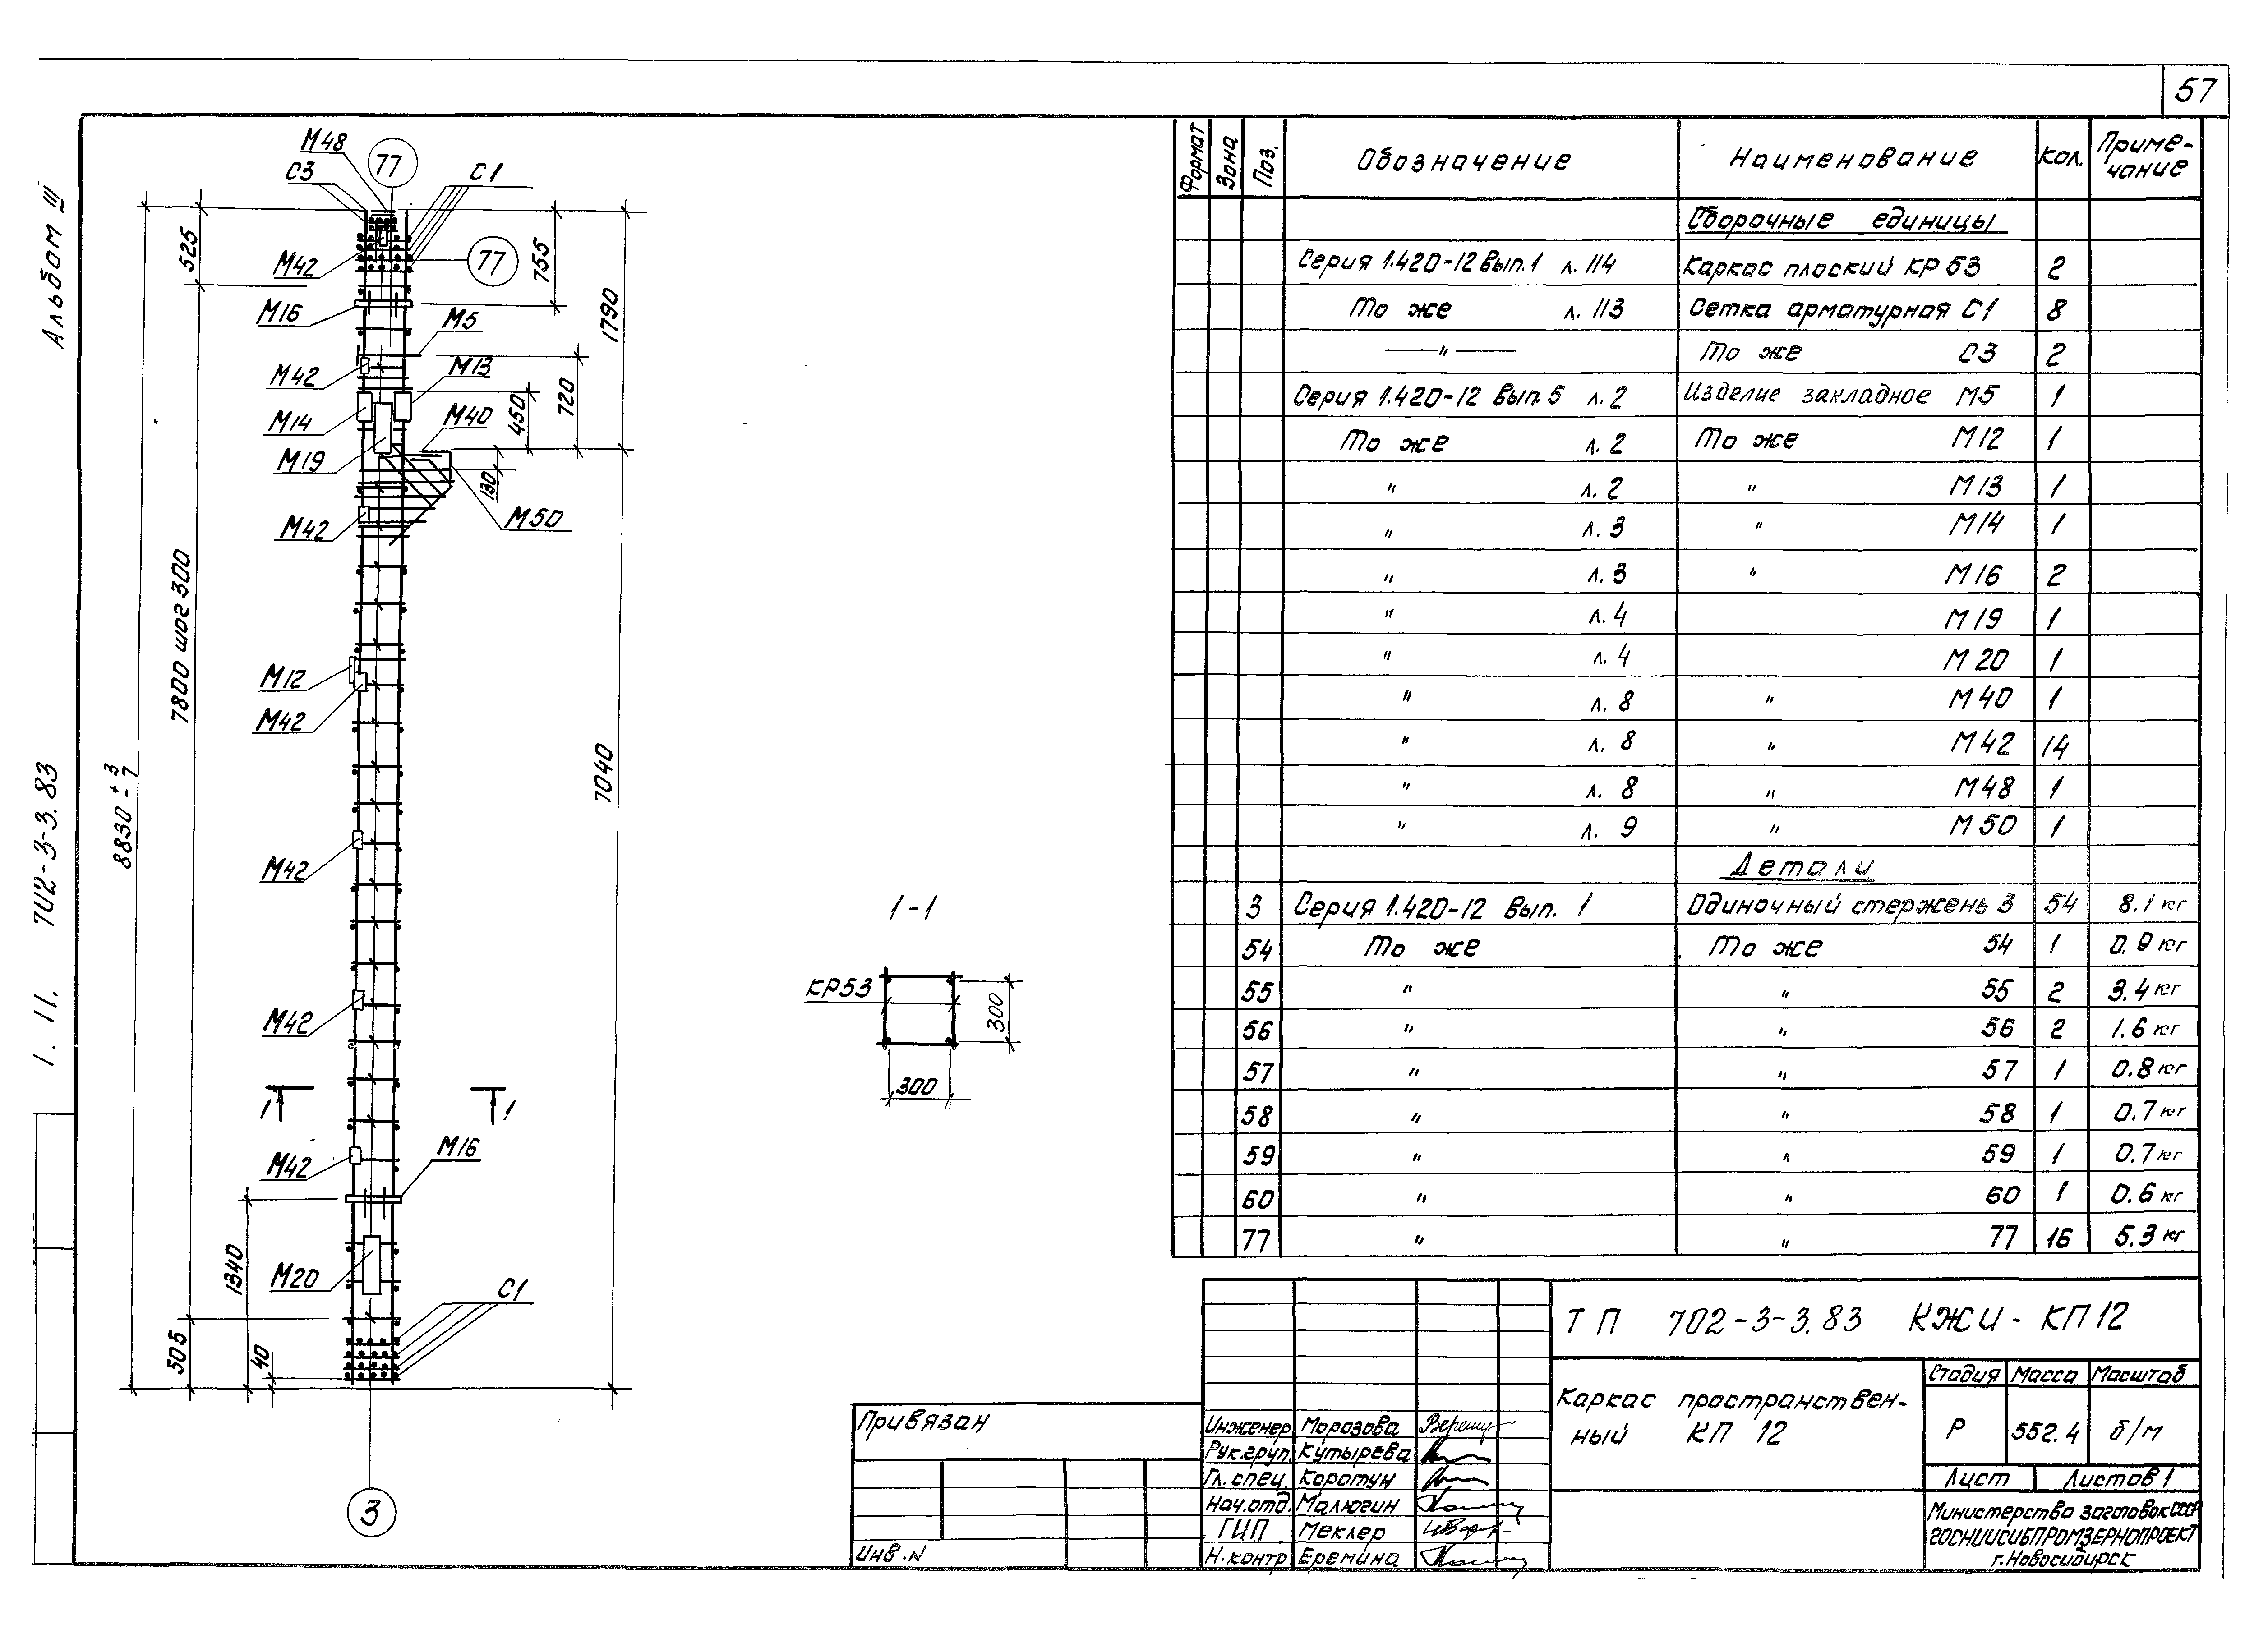 57
Альбом III
1. 11. 702-3-3.83
М48
77
С3
С1
М42
77
М16
М5
М42
М13
М14
М40
М19
М50
М42
М12
М42
М42
М42
М42
М16
М20
С1
3
525
755
1790
720
450
130
7800 шаг 300
8830 +3 -7
7040
1340
505
40
1 1
1-1
КР53
300
300
Формат Зона Поз. Обозначение Наименование Кол. Приме-чание
Сборочные единицы
Серия 1.420-12 вып.1 л. 114 Каркас плоский КР 53 2
То же л. 113 Сетка арматурная С1 8
— " — То же С3 2
Серия 1.420-12 вып. 5 л. 2 Изделие закладное М5 1
То же л. 2 То же М12 1
" л. 2 " М13 1
" л. 3 " М14 1
" л. 3 " М16 2
" л. 4 М19 1
" л. 4 М20 1
" л. 8 " М40 1
" л. 8 " М42 14
" л. 8 " М48 1
" л. 9 " М50 1
Детали
3 Серия 1.420-12 Вып. 1 Одиночный стержень 3 54 8.1 кг
54 То же То же 54 1 0.9 кг
55 " " 55 2 3.4 кг
56 " " 56 2 1.6 кг
57 " " 57 1 0.8 кг
58 " " 58 1 0.7 кг
59 " " 59 1 0.7 кг
60 " " 60 1 0.6 кг
77 " " 77 16 5.3 кг
ТП 702-3-3.83 КЖИ - КП12
Каркас пространствен-
ный КП 12
Стадия Масса Масштаб
Р 552.4 б/м
Лист Листов 1
Министерство заготовок СССР
ГОСНИИСИБПРОМЗЕРНОПРОЕКТ
г. Новосибирск
Привязан
Инв. N
Инженер Морозова
Рук.груп. Кутырева
Гл. спец. Коротун
Нач.отд. Малюгин
ГИП Меклер
Н.контр. Еремина